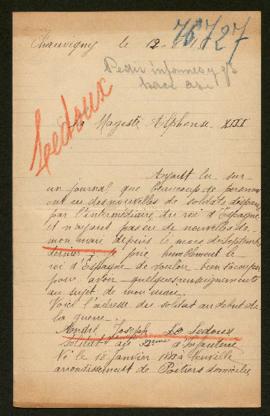 Chauvigny le 12
76727
Pedir informes y
Ledoux
Sa Majesté Alphonse XIII
Ayant lu sur
un journal que beaucoup de personnes
ont eu des nouvelles de soldats disparus
par l'intermédiaire du roi d'Espagne
et n'ayant pas eu de nouvelles de
mon mari depuis le mois de septembre
dernier je prie humblement le
roi d'Espagne de vouloir bien s'occuper
pour avoir quelques renseignements
au sujet de mon mari
Voici l'adresse du soldat au début de
la guerre
André Joseph Ledoux
soldat au d'Infanterie
Né le 15 janvier à Neuville
arrondissement de Poitiers